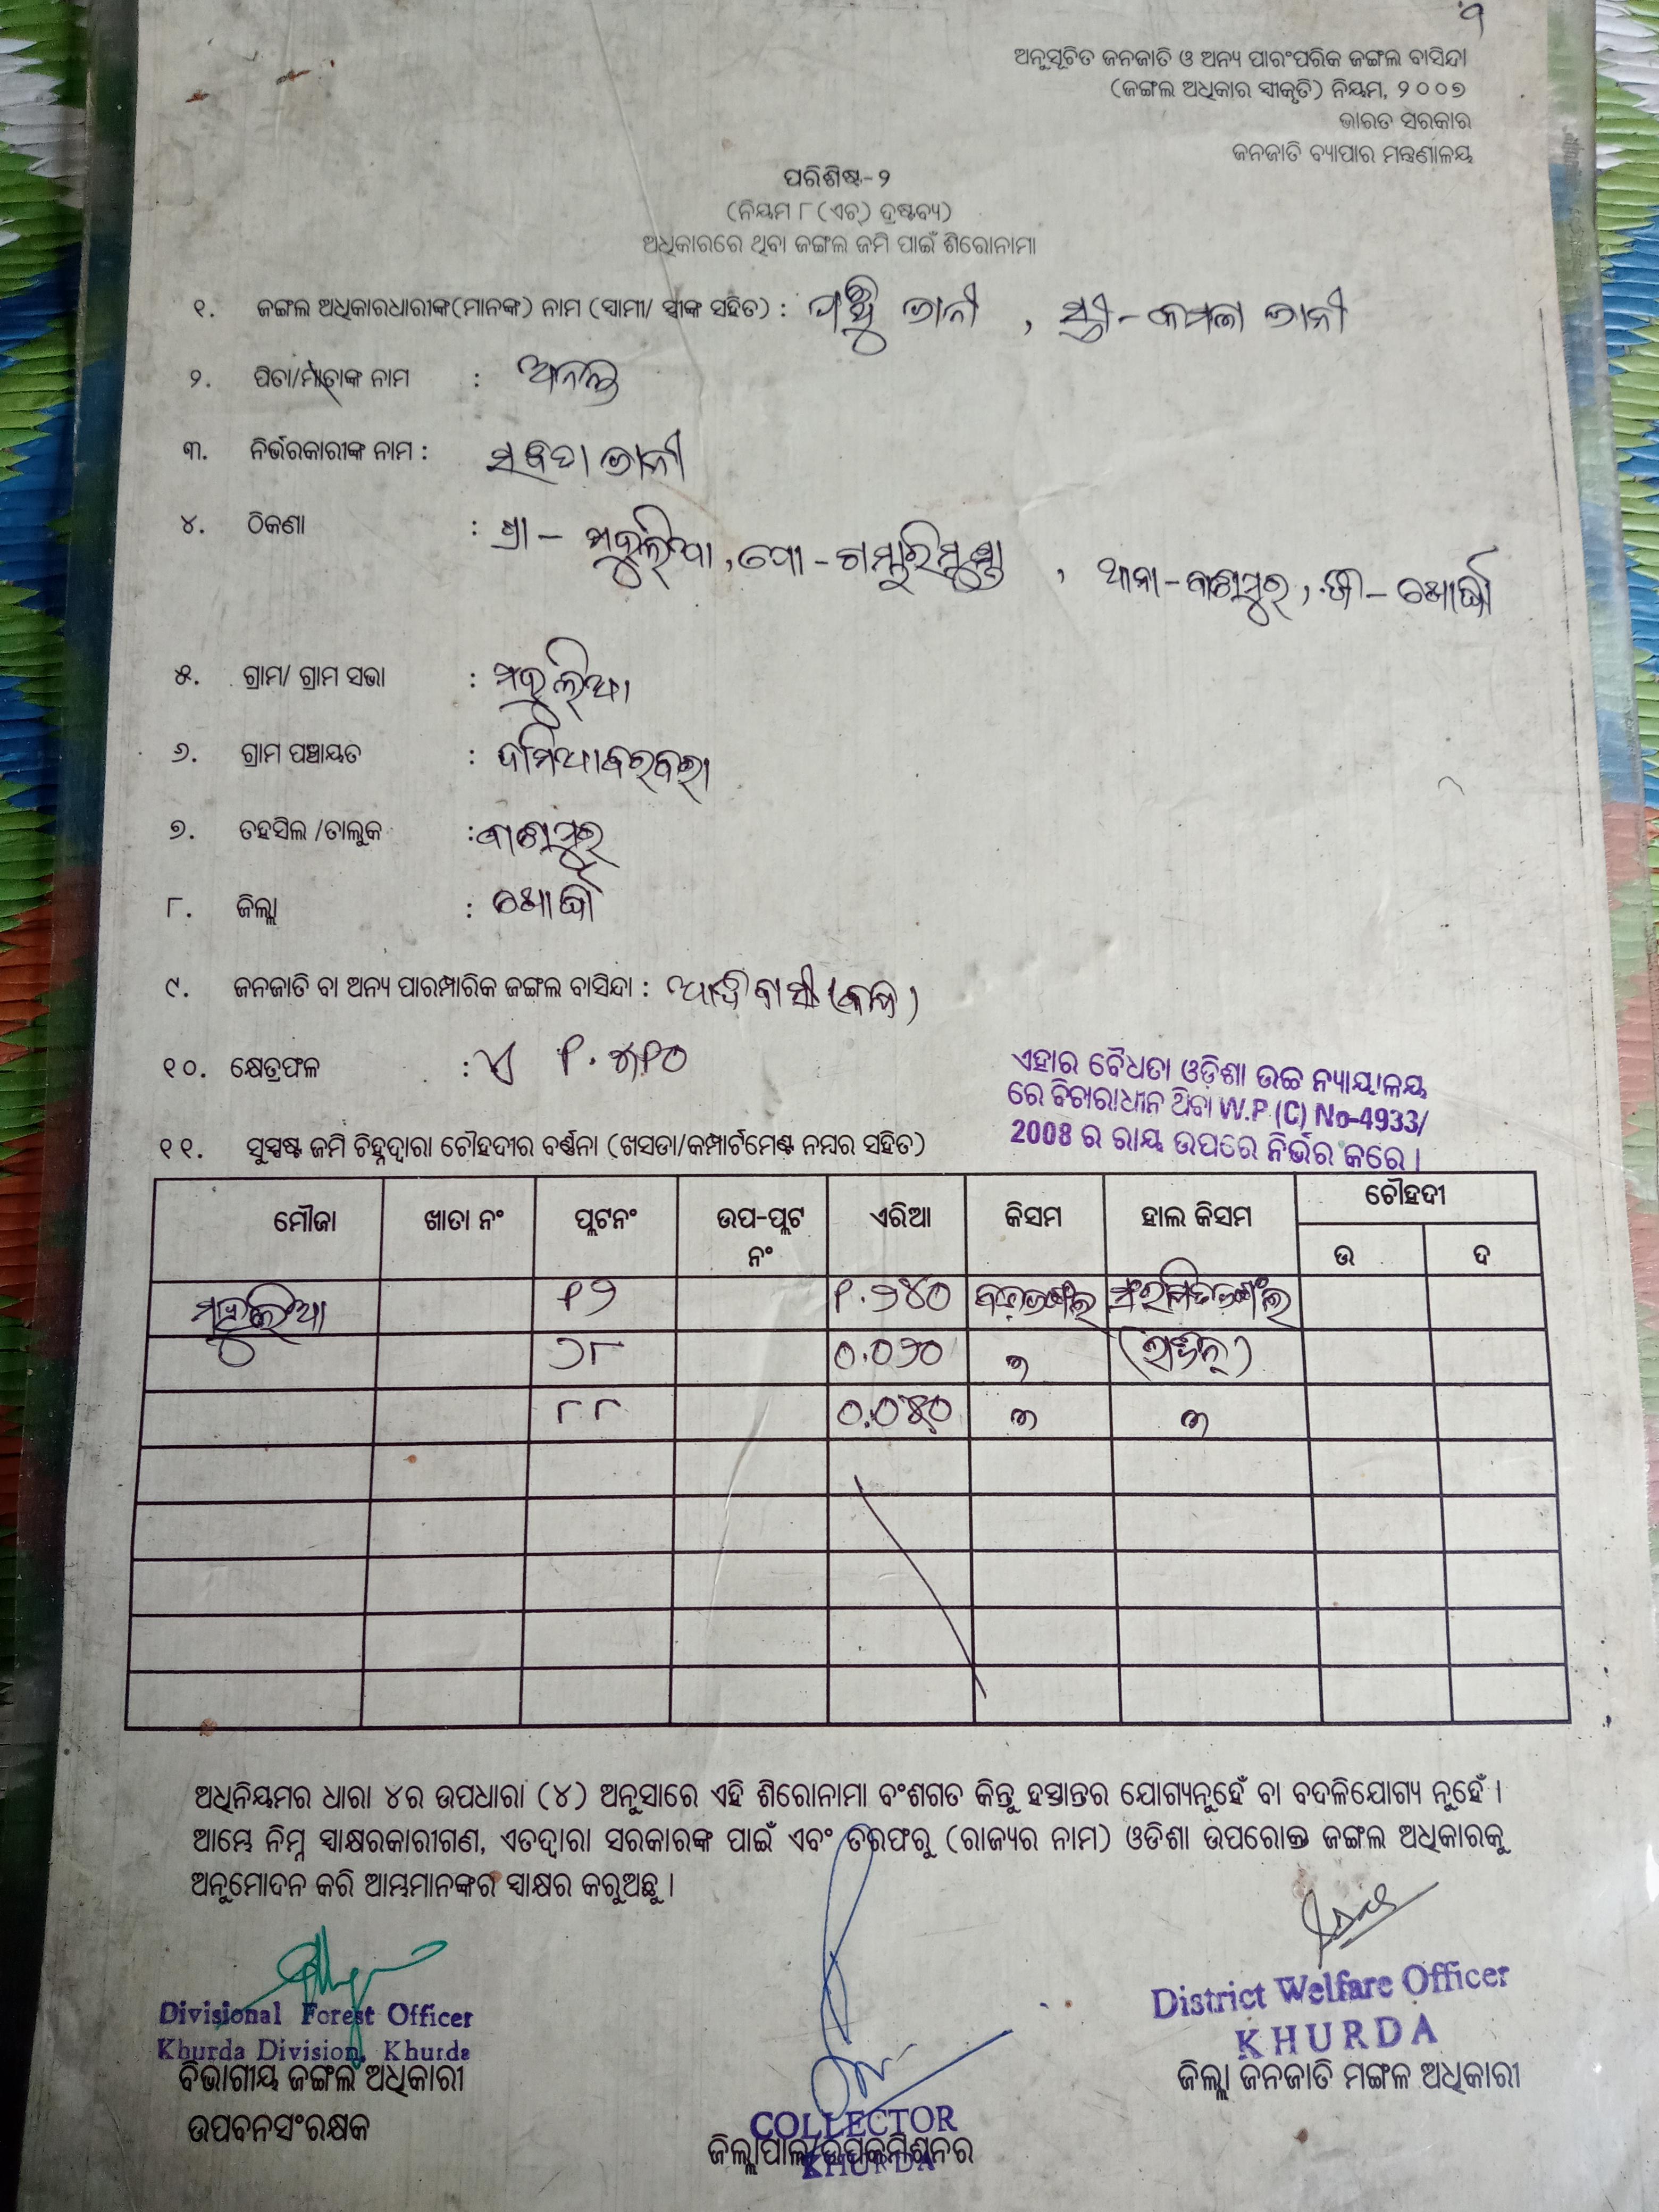 ଅନୁସୂଚିତ ଜନଜାତି ଓ ଅନ୍ୟ ପାରଂପରିକ ଜଙ୍ଗଲ ବାସିନ୍ଦା
(ଜଙ୍ଗଲ ଅଧିକାର ସ୍ୱୀକୃତି) ନିୟମ, ୨୦୦୭
ଭାରତ ସରକାର
ଜନଜାତି ବ୍ୟାପାର ମନ୍ତ୍ରଣାଳୟ
ପରିଶିଷ୍ଟ-୨
(ନିୟମ ୮(ଏଚ୍) ଦ୍ରଷ୍ଟବ୍ୟ)
ଅଧିକାରରେ ଥିବା ଜଙ୍ଗଲ ଜମି ପାଇଁ ଶିରୋନାମା
୧. ଜଙ୍ଗଲ ଅଧିକାରଧାରୀଙ୍କ(ମାନଙ୍କ) ନାମ (ସ୍ୱାମୀ/ ସ୍ତ୍ରୀଙ୍କ ସହିତ) : ଜାନୀ , ସ୍ତ୍ରୀ - କମଳା ଜାନୀ
୨. ପିତା/ମାତାଙ୍କ ନାମ : ଅନନ୍ତ
୩. ନିର୍ଭରକାରୀଙ୍କ ନାମ : ଜାନୀ
୪. ଠିକଣା : ଗ୍ରା - ମହୁଲିଆ , ପୋ - ଗମ୍ଭାରିମୁଣ୍ଡା , ଥାନା - ବାଣପୁର , ଜି - ଖୋର୍ଦ୍ଧା
୫. ଗ୍ରାମ/ ଗ୍ରାମ ସଭା : ମହୁଲିଆ
୬. ଗ୍ରାମ ପଞ୍ଚାୟତ : ଦାମିଆବରବରା
୭. ତହସିଲ /ତାଲୁକ : ବାଣପୁର
୮. ଜିଲ୍ଲା : ଖୋର୍ଦ୍ଧା
୯. ଜନଜାତି ବା ଅନ୍ୟ ପାରମ୍ପାରିକ ଜଙ୍ଗଲ ବାସିନ୍ଦା : ଆଦିବାସୀ (କନ୍ଧ)
୧୦. କ୍ଷେତ୍ରଫଳ : ଏ ୧.୫୧୦
ଏହାର ବୈଧତା ଓଡ଼ିଶା ଉଚ୍ଚ ନ୍ୟାୟାଳୟ
ରେ ବିଚାରାଧୀନ ଥିବା W.P (C) No-4933/
2008 ର ରାୟ ଉପରେ ନିର୍ଭର କରେ ।
୧୧. ସୁସ୍ପଷ୍ଟ ଜମି ଚିହ୍ନଦ୍ୱାରା ଚୌହଦୀର ବର୍ଣ୍ଣନା (ଖସଡା/କମ୍ପାର୍ଟମେଣ୍ଟ ନମ୍ବର ସହିତ)
ମୌଜା ଖାତା ନଂ ପ୍ଲଟନଂ ଉପ-ପ୍ଲଟ ନଂ ଏରିଆ କିସମ ହାଲ କିସମ ଚୌହଦୀ
ଉ ଦ
ମହୁଲିଆ ୧୨ ୧.୨୪୦
୨୮ ୦.୦୨୦
୮୮ ୦.୦୫୦
ଅଧିନିୟମର ଧାରା ୪ର ଉପଧାରା (୪) ଅନୁସାରେ ଏହି ଶିରୋନାମା ବଂଶଗତ କିନ୍ତୁ ହସ୍ତାନ୍ତର ଯୋଗ୍ୟନୁହେଁ ବା ବଦଳିଯୋଗ୍ୟ ନୁହେଁ ।
ଆମ୍ଭେ ନିମ୍ନ ସ୍ୱାକ୍ଷରକାରୀଗଣ, ଏତଦ୍ୱାରା ସରକାରଙ୍କ ପାଇଁ ଏବଂ ତରଫରୁ (ରାଜ୍ୟର ନାମ) ଓଡିଶା ଉପରୋକ୍ତ ଜଙ୍ଗଲ ଅଧିକାରକୁ
ଅନୁମୋଦନ କରି ଆମ୍ଭମାନଙ୍କର ସ୍ୱାକ୍ଷର କରୁଅଛୁ ।
Divisional Forest Officer
Khurda Division, Khurda
ବିଭାଗୀୟ ଜଙ୍ଗଲ ଅଧିକାରୀ
ଉପବନସଂରକ୍ଷକ
COLLECTOR
KHURDA
ଜିଲ୍ଲାପାଳ/ଉପକମିଶନର
District Welfare Officer
KHURDA
ଜିଲ୍ଲା ଜନଜାତି ମଙ୍ଗଳ ଅଧିକାରୀ